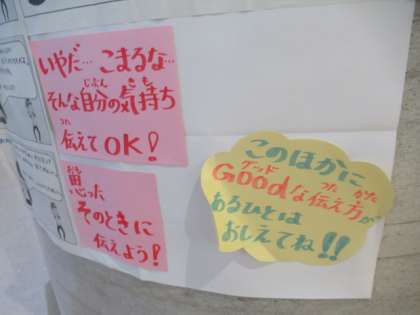 いやだ…こまるな…
そんな自分の気持ち
じぶん
きも
伝えてOK!
つた
思った
そのときに
伝えよう!
このほかに
Goodな伝え方が
グッド
つた
かた
あるひとは
おしえてね!!